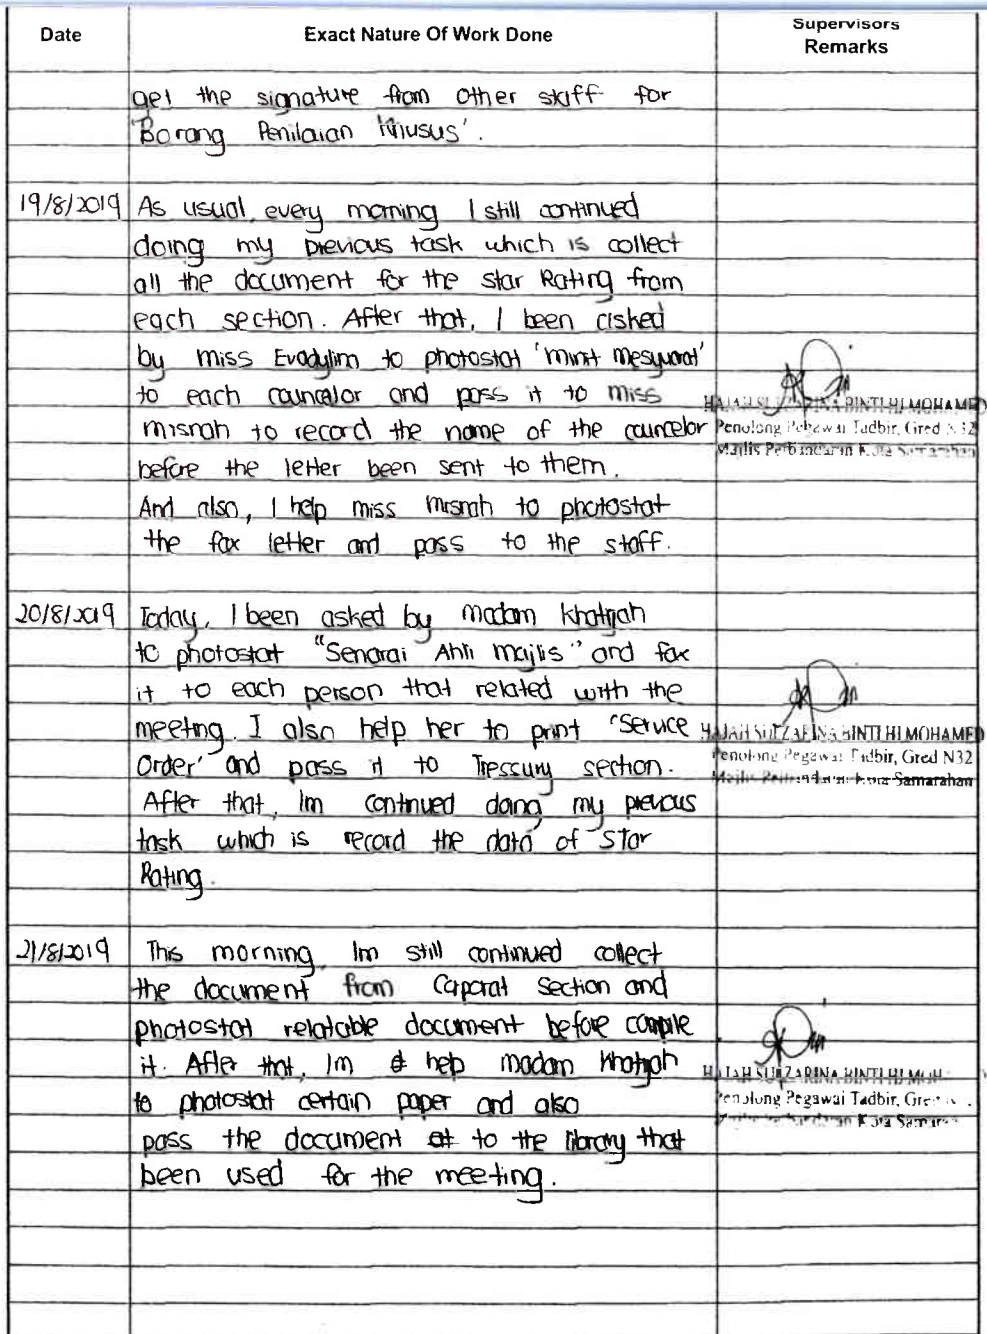 Date
Exact Nature Of Work Done
Supervisors
Remarks
get the signature from other staff for
'Borang Penilaian Khusus'.
19/8/2019
As usual, every morning I still continued
doing my previous task which is collect
all the document for the Star Rating from
each section. After that, I been asked
by miss Evadylim to photostat 'minit mesyuarat'
to each councelor and pass it to miss
misnah to record the name of the councelor
before the letter been sent to them.
And also, I help miss misnah to photostat
the fax letter and pass to the staff.
HAJAH SUIZARINA BINTI HJ MOHAMED
Penolong Pegawai Tadbir, Gred N32
Majlis Perbandaran Kota Samarahan
20/8/2019
Today, I been asked by madam khatijah
to photostat "Senarai Ahli majlis" and fax
it to each person that related with the
meeting. I also help her to print 'Service
Order' and pass it to Tressury section.
After that, Im continued doing my previous
task which is record the data of Star
Rating.
HAJAH SUIZARINA BINTI HJ MOHAMED
Penolong Pegawai Tadbir, Gred N32
Majlis Perbandaran Kota Samarahan
21/8/2019
This morning, Im still continued collect
the document from Caporat Section and
photostat relatable document before compile
it. After that, Im help madam khatijah
to photostat certain paper and also
pass the document to the library that
been used for the meeting.
HAJAH SUIZARINA BINTI HJ MOH
Penolong Pegawai Tadbir, Gred
Majlis Perbandaran Kota Samarahan